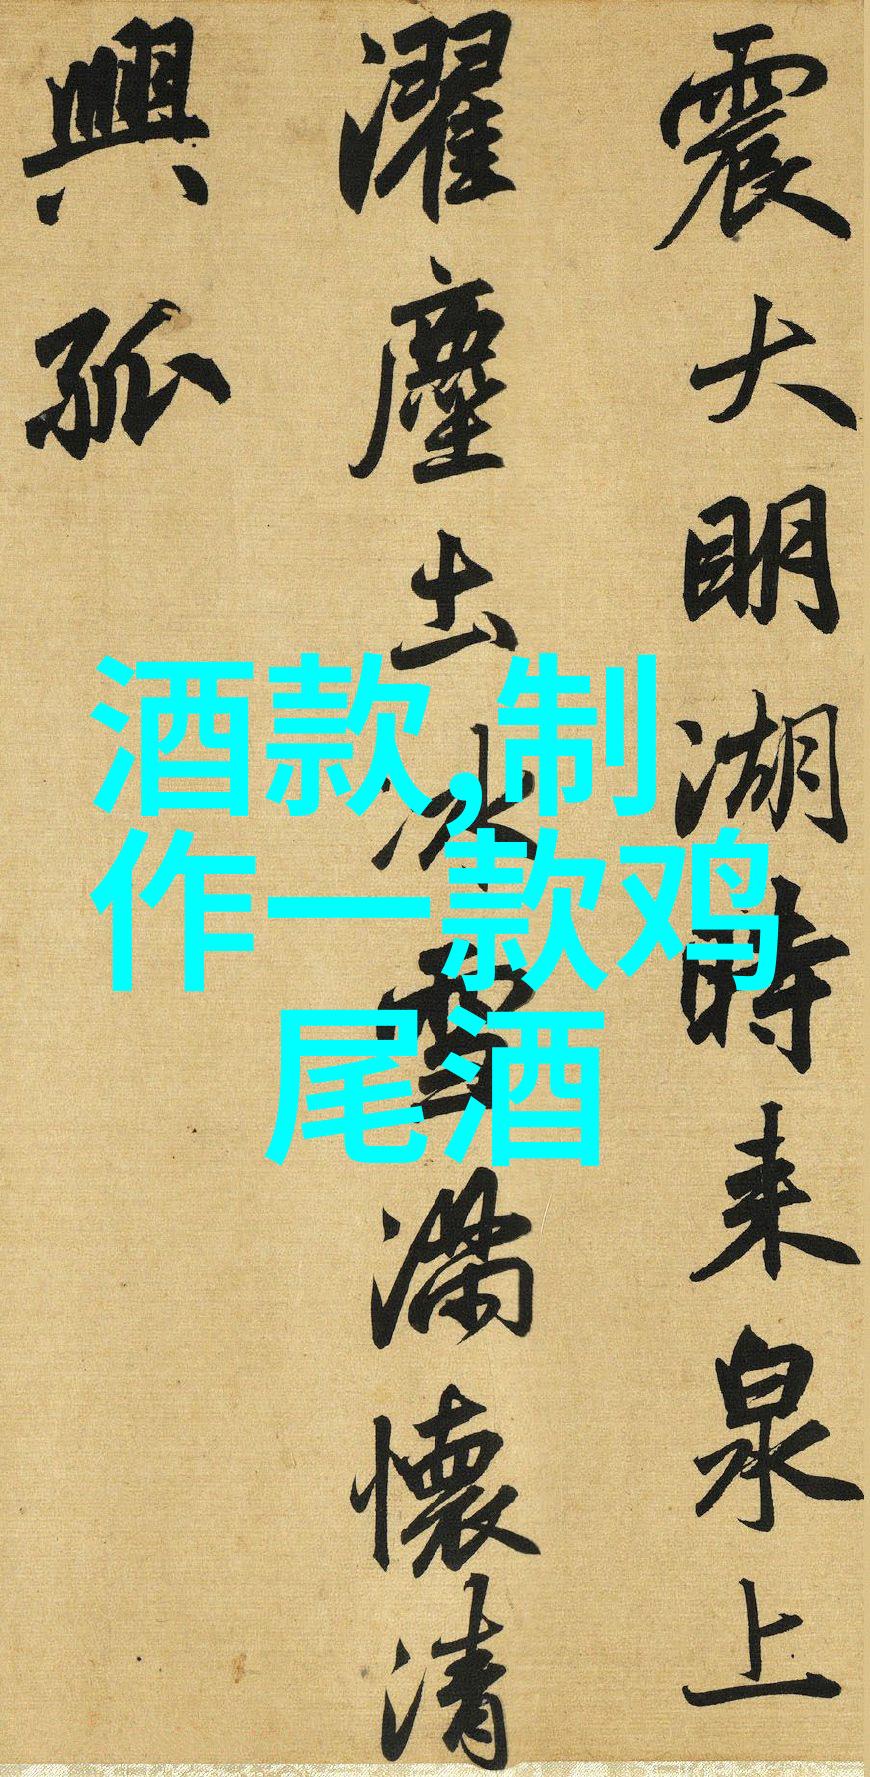 震大明湖時来泉上
濯塵土冰雪滿懷清
興孤
酒款,制
作一款鸡
尾酒